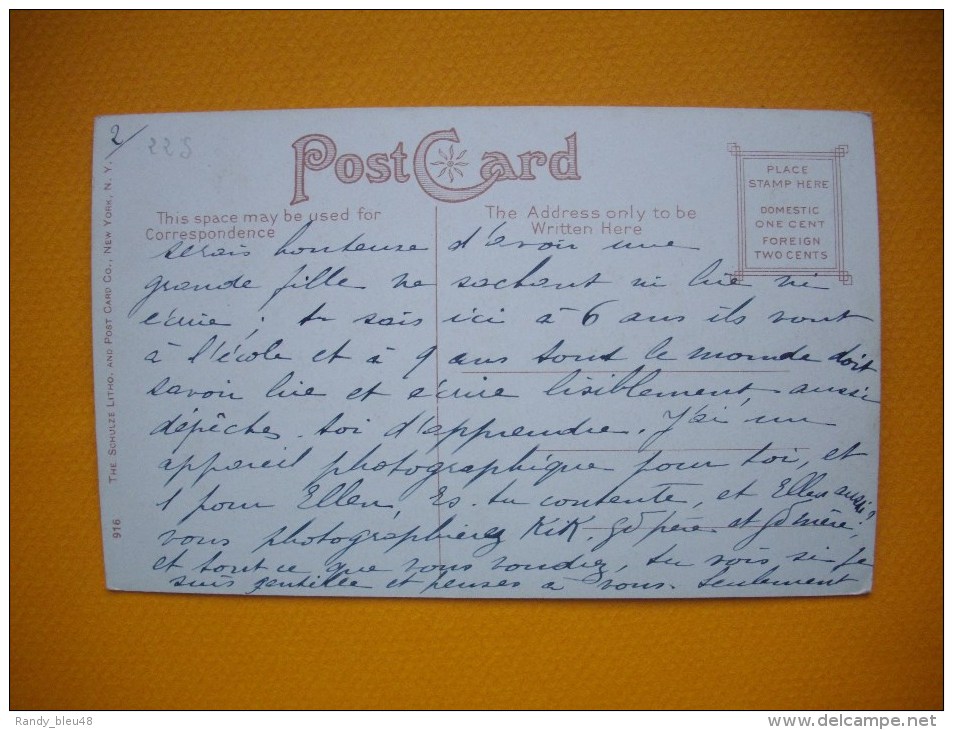 2/
225
Post Card
This space may be used for
Correspondence
The Address only to be
Written Here
PLACE
STAMP HERE
DOMESTIC
ONE CENT
FOREIGN
TWO CENTS
THE SCHULZE LITHO. AND POST CARD CO., NEW YORK, N. Y.
916
serais honteuse d'avoir une
grande fille ne sachant ni lire ni
écrire; tu sais ici à 6 ans ils vont
à l'école et à 9 ans tout le monde doit
savoir lire et écrire lisiblement, aussi
dépêches-toi d'apprendre. J'ai un
appareil photographique pour toi, et
1 pour Ellen, Es-tu contente, et Ellen aussi?
vous photographierez KiK, Gd père et Gd mère,
et tout ce que vous voudrez, tu vois si je
suis gentille et penses à vous. Seulement
Randy_bleu48
www.delcampe.net